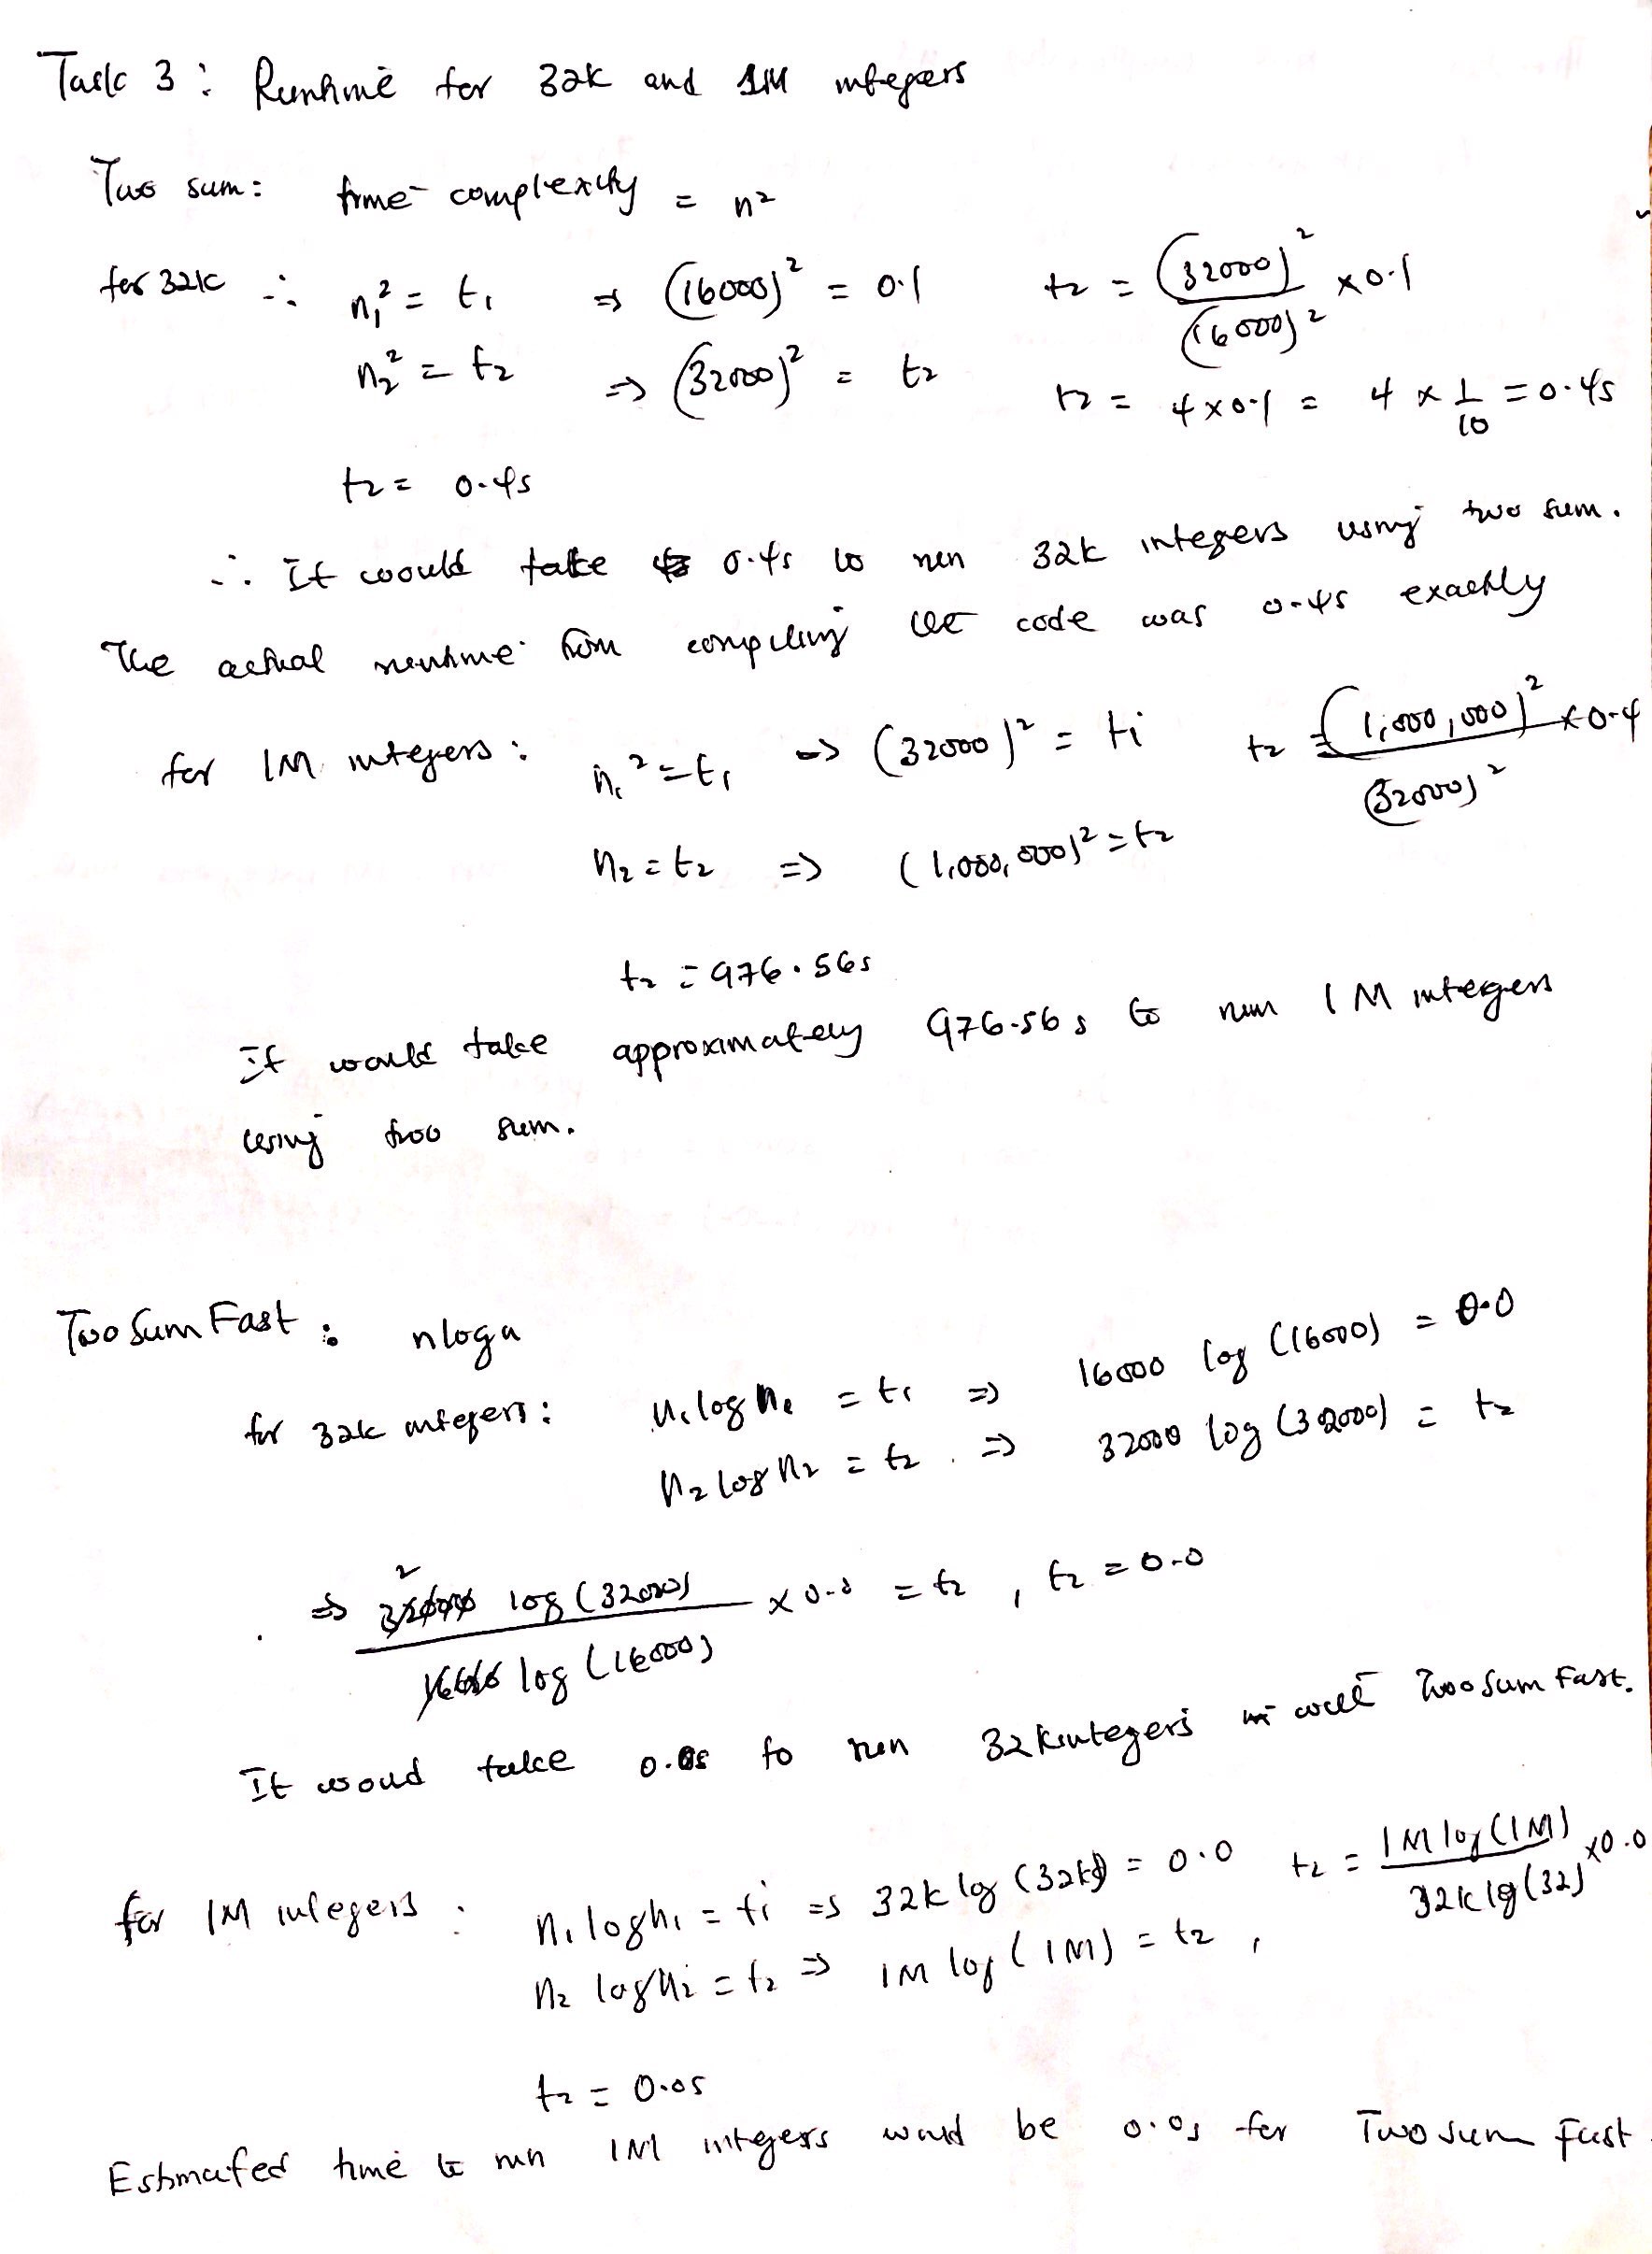 Task 3: Runtime for 32k and 1M integers
Two sum: time complexity = n²
for 32k ∴ n₁² = t₁ ⇒ (16000)² = 0.1 t₂ = (32000)²/(16000)² × 0.1
n₂² = t₂ ⇒ (32000)² = t₂ t₂ = 4 × 0.1 = 4 × 1/10 = 0.4s
t₂ = 0.4s
∴ It would take 0.4s to run 32k integers using two sum.
The actual runtime from compiling the code was 0.4s exactly
for 1M integers: n₁² = t₁ ⇒ (32000)² = t₁ t₂ = (1,000,000)²/(32000)² × 0.4
n₂ = t₂ ⇒ (1,000,000)² = t₂
t₂ = 976.56s
It would take approximately 976.56s to run 1M integers
using two sum.
Two Sum Fast: nlogn
for 32k integers: n₁ log n₁ = t₁ ⇒ 16000 log (16000) = 0.0
n₂ log n₂ = t₂ ⇒ 32000 log (32000) = t₂
⇒ 2 32000 log (32000)/16000 log (16000) × 0.0 = t₂, t₂ = 0.0
It woud take 0.0s to run 32k integers Two Sum Fast.
for 1M integers: n₁ log n₁ = t₁ ⇒ 32k log (32k) = 0.0 t₂ = 1M log (1M)/32k lg (32) × 0.0
n₂ log n₂ = t₂ ⇒ 1M log (1M) = t₂,
t₂ = 0.0s
Estimated time to run 1M integers would be 0.0s for Two sum Fast.